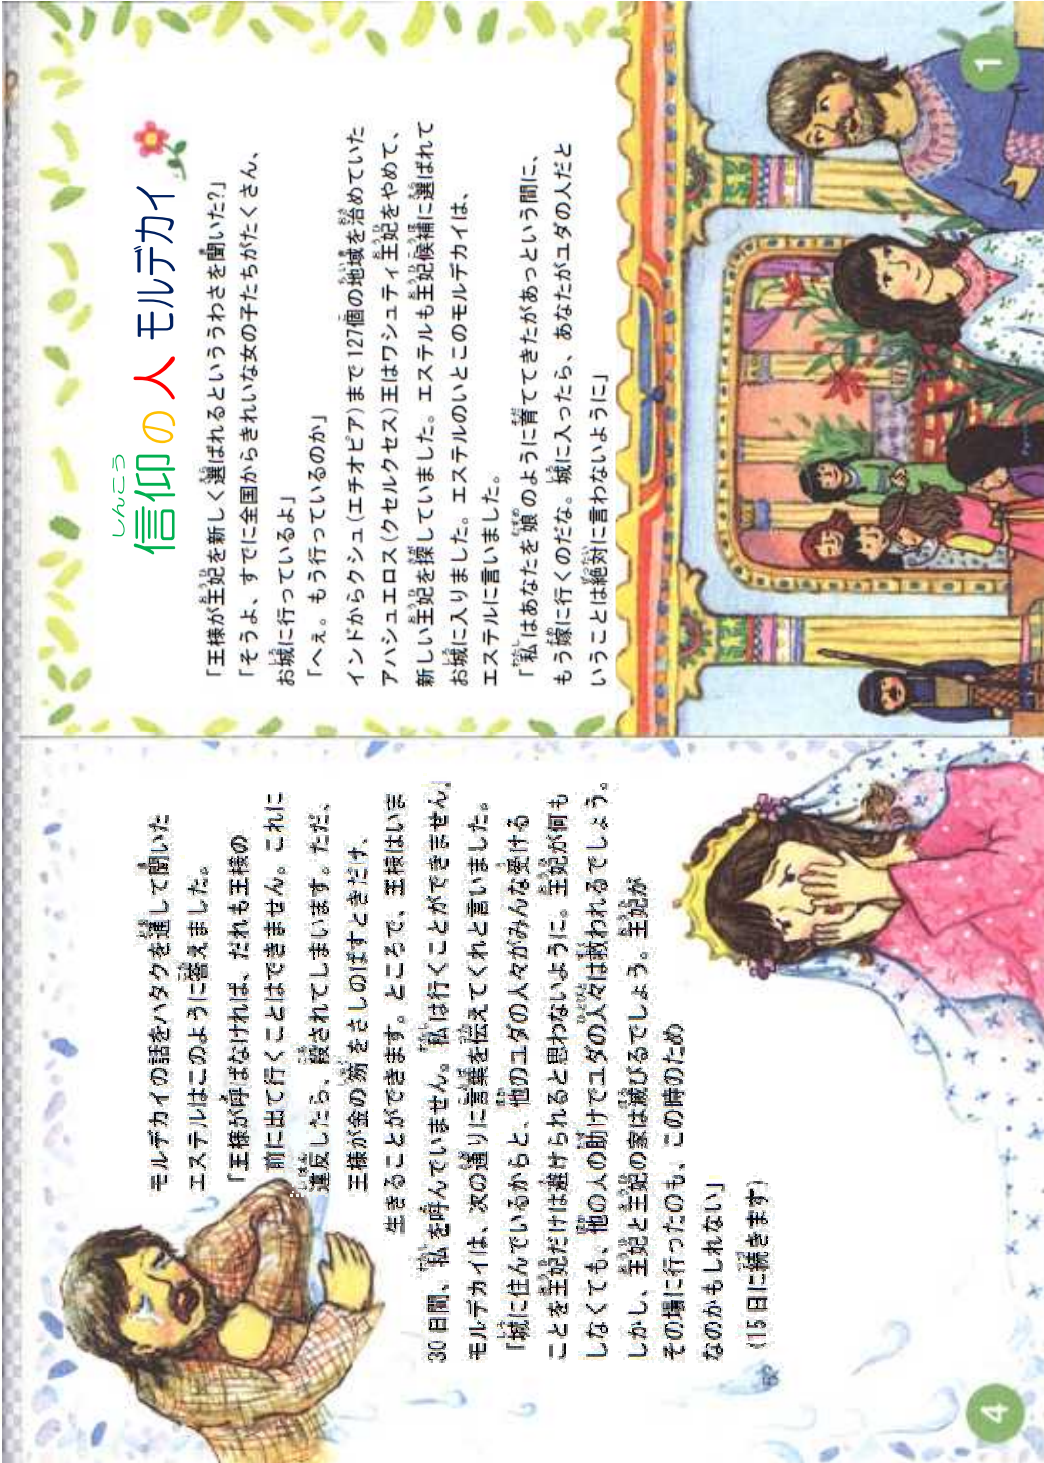 信仰の人 モルデカイ
しんこう
「王様が王妃を新しく選ばれるといううわさを聞いた?」
「そうよ、すでに全国からきれいな女の子たちがたくさん、
お城に行っているよ」
「へぇ。もう行っているのか」
インドからクシュ(エチオピア)まで127個の地域を治めていた
アハシュエロス(クセルクセス)王はワシュティ王妃をやめて、
新しい王妃を探していました。エステルも王妃候補に選ばれて
お城に入りました。エステルのいとこのモルデカイは、
エステルに言いました。
「私はあなたを娘のように育ててきたがあっという間に、
もう嫁に行くのだな。城に入ったら、あなたがユダの人だと
いうことは絶対に言わないように」
1
モルデカイの話をハタクを通して聞いた
エステルはこのように答えました。
「王様が呼ばなければ、だれも王様の
前に出て行くことはできません。これに
違反したら、殺されてしまいます。ただ、
王様が金の笏をさしのばすときだけ、
生きることができます。ところで、王様はいま
30日間、私を呼んでいません。私は行くことができません」
モルデカイは、次の通りに言葉を伝えてくれと言いました。
「城に住んでいるからと、他のユダの人々がみんな受ける
ことを王妃だけは避けられると思わないように。王妃が何も
しなくても、他の人の助けでユダの人々は救われるでしょう。
しかし、王妃と王妃の家は滅びるでしょう。王妃が
その場に行ったのも、この時のため
なのかもしれない」
(15日に続きます)
4